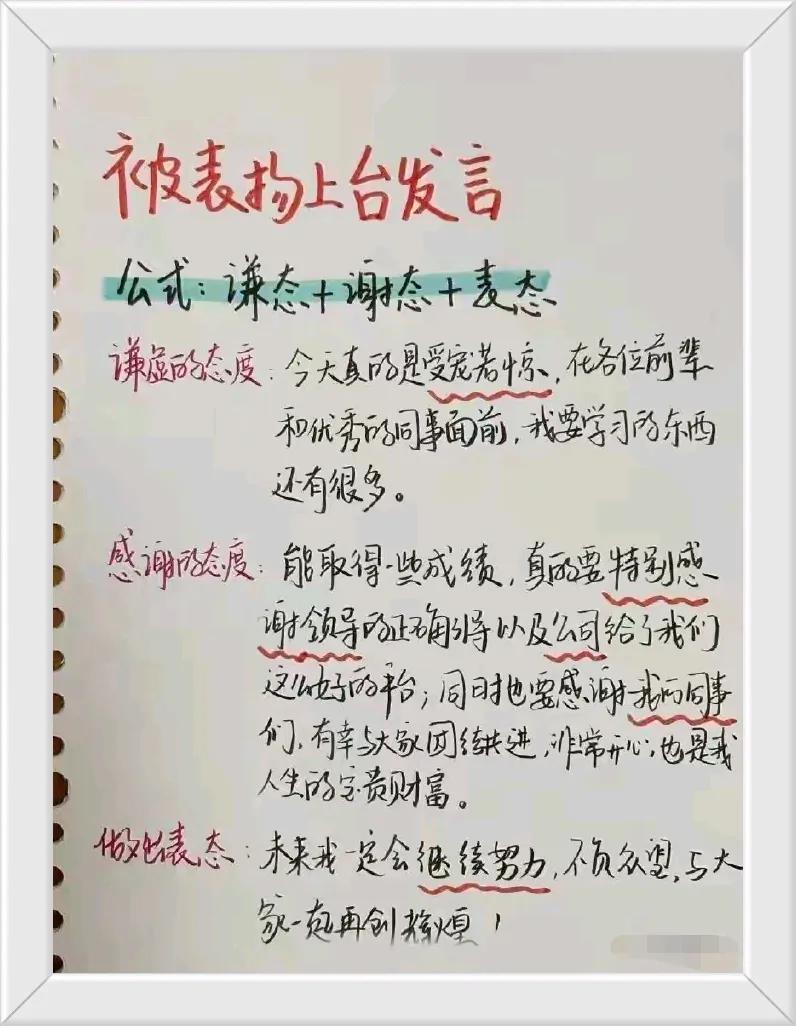 被表扬上台发言
公式：谦态+谢态+表态
谦虚的态度：今天真的是受宠若惊，在各位前辈
和优秀的同事面前，我要学习的东西
还有很多。
感谢的态度：能取得一些成绩，真的要特别感
谢领导的正确引导以及公司给了我们
这么好的平台；同时也要感谢我的同事
们，有幸与大家团结共进，非常开心，也是我
人生的宝贵财富。
做出表态：未来我一定会继续努力，不负众望，与大
家一起再创辉煌！